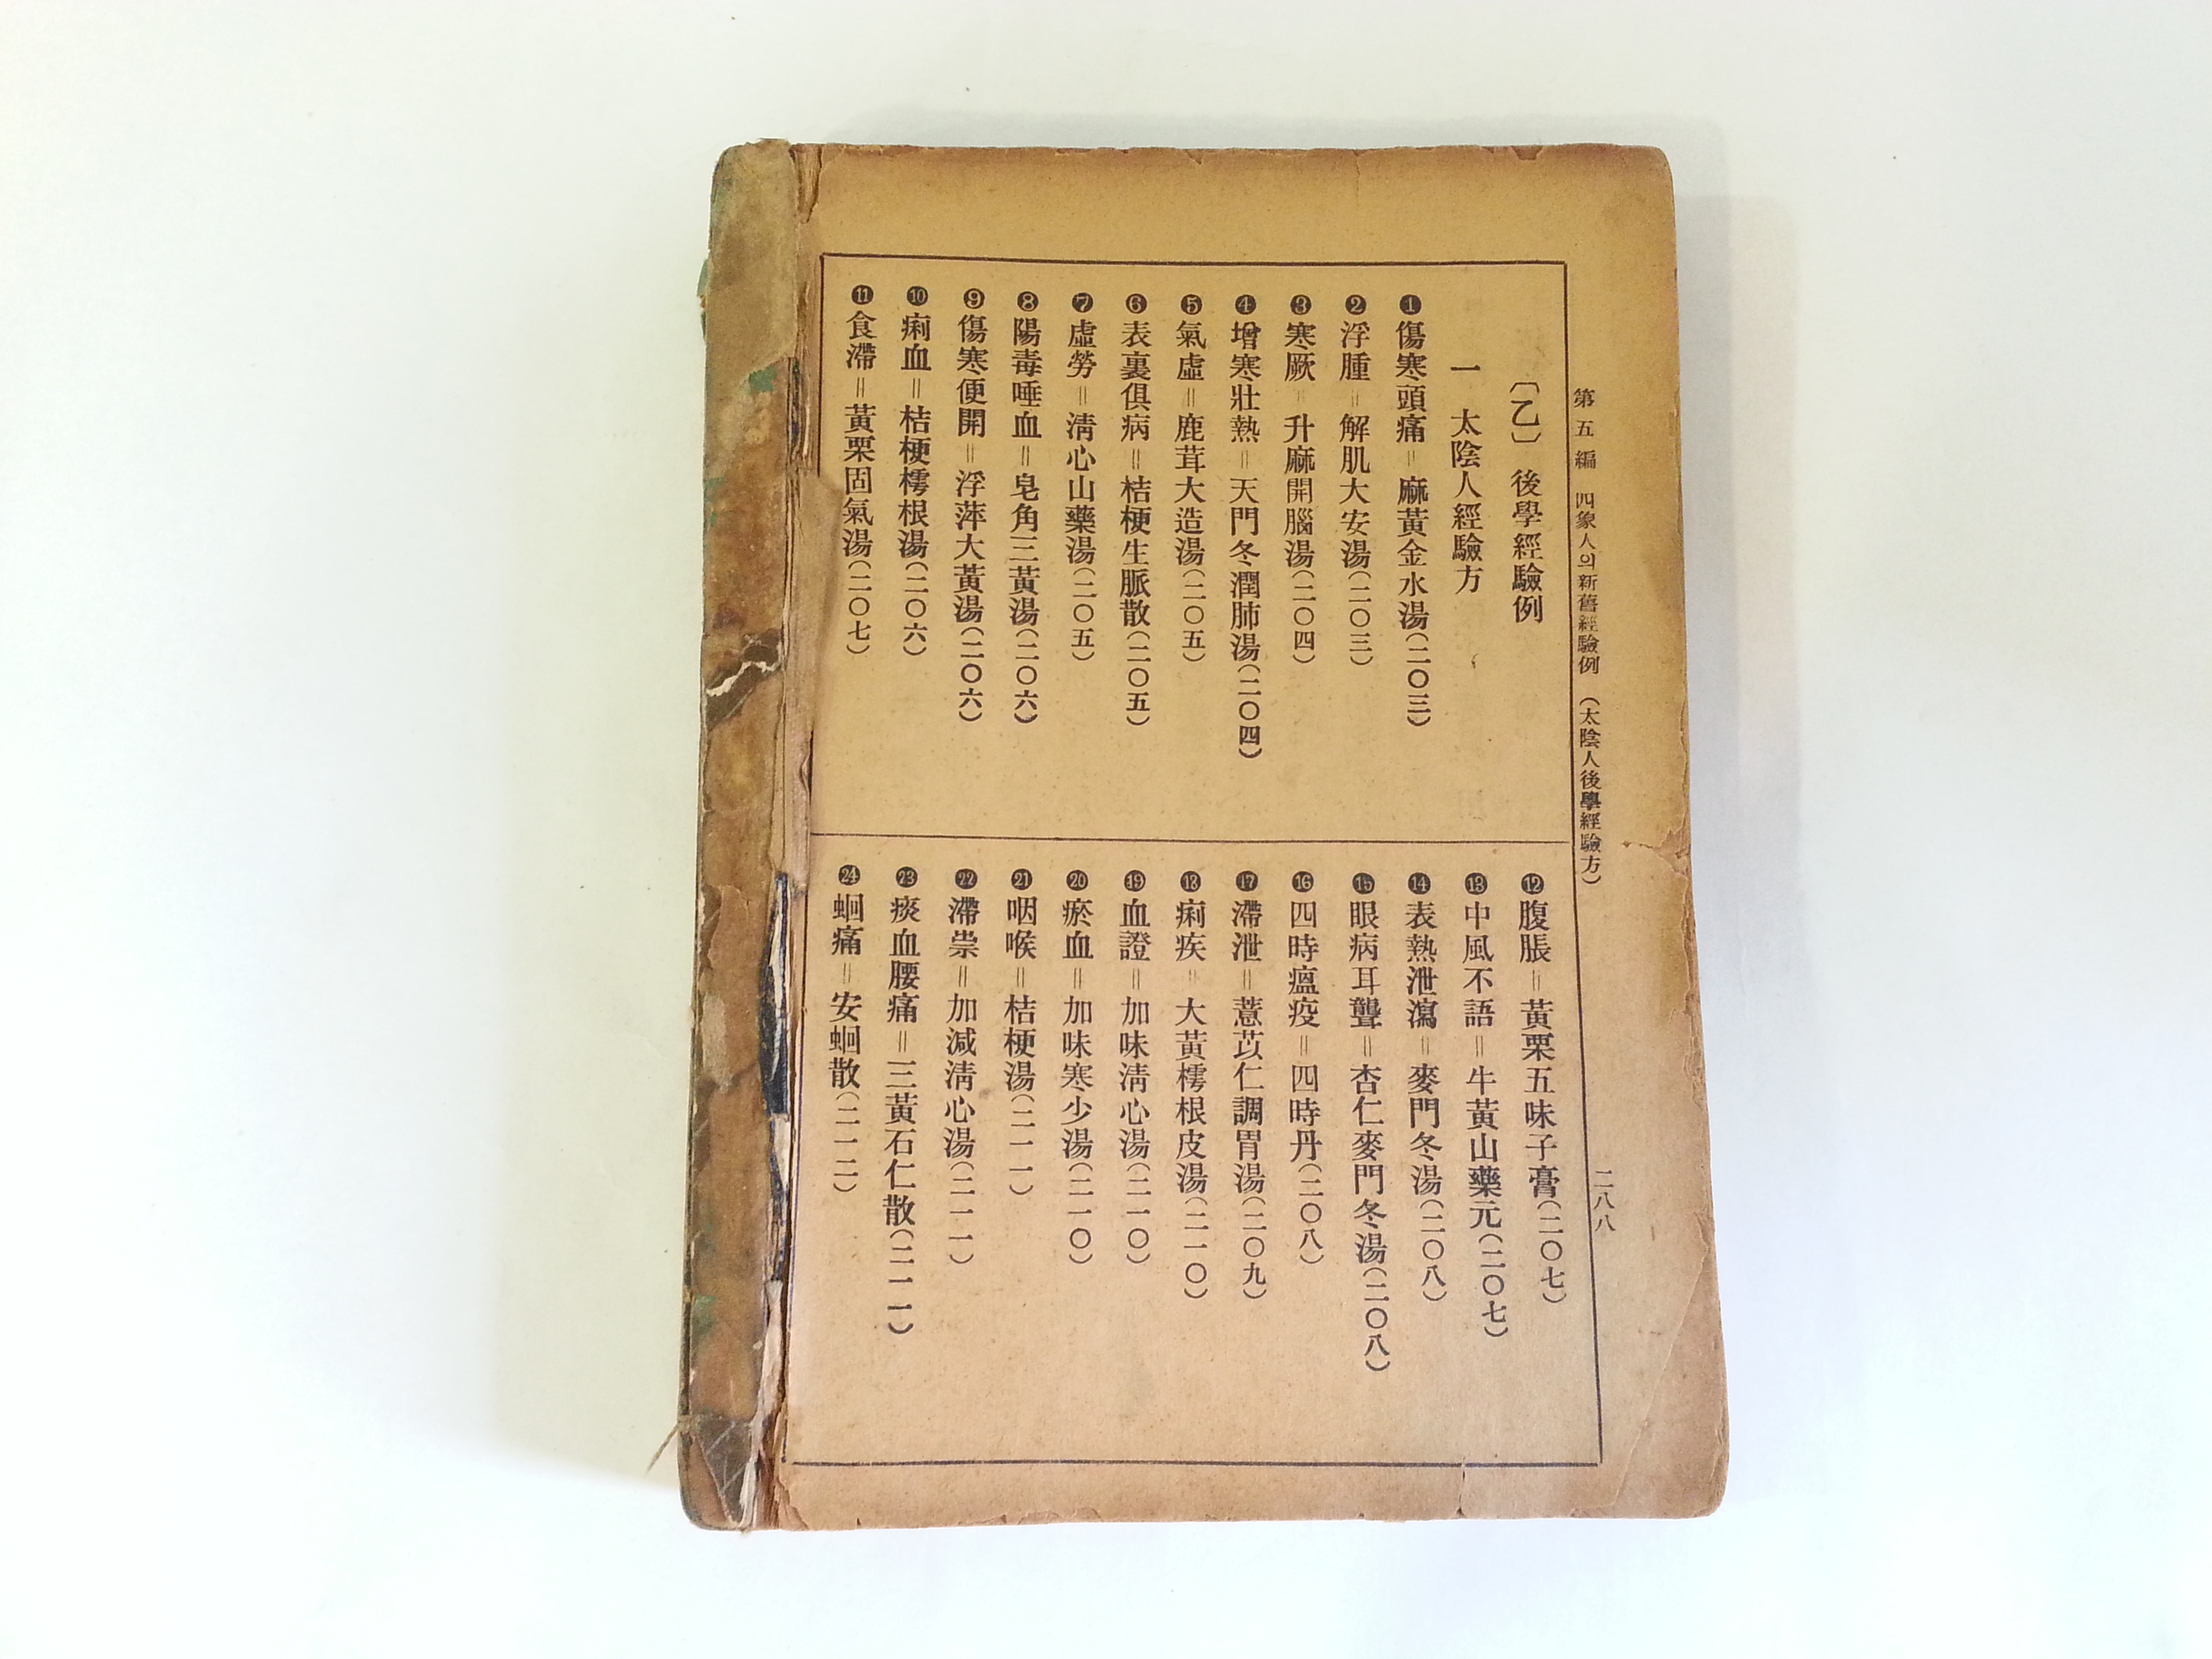 第五編 四象人의新舊經驗例 (太陰人後學經驗方) 二八八
〔乙〕 後學經驗例
一 太陰人經驗方
❶傷寒頭痛=麻黃金水湯(二〇三)
❷浮腫=解肌大安湯(二〇三)
❸寒厥=升麻開腦湯(二〇四)
❹增寒壯熱=天門冬潤肺湯(二〇四)
❺氣虛=鹿茸大造湯(二〇五)
❻表裏俱病=桔梗生脈散(二〇五)
❼虛勞=淸心山藥湯(二〇五)
❽陽毒唾血=皂角三黃湯(二〇六)
❾傷寒便開=浮萍大黃湯(二〇六)
❿痢血=桔梗樗根湯(二〇六)
⓫食滯=黃栗固氣湯(二〇七)
⓬腹脹=黃栗五味子膏(二〇七)
⓭中風不語=牛黃山藥元(二〇七)
⓮表熱泄瀉=麥門冬湯(二〇八)
⓯眼病耳聾=杏仁麥門冬湯(二〇八)
⓰四時瘟疫=四時丹(二〇八)
⓱滯泄=薏苡仁調胃湯(二〇九)
⓲痢疾=大黃樗根皮湯(二一〇)
⓳血證=加味淸心湯(二一〇)
⓴瘀血=加味寒少湯(二一〇)
㉑咽喉=桔梗湯(二一一)
㉒滯祟=加減淸心湯(二一一)
㉓痰血腰痛=三黃石仁散(二一一)
㉔蛔痛=安蛔散(二一二)